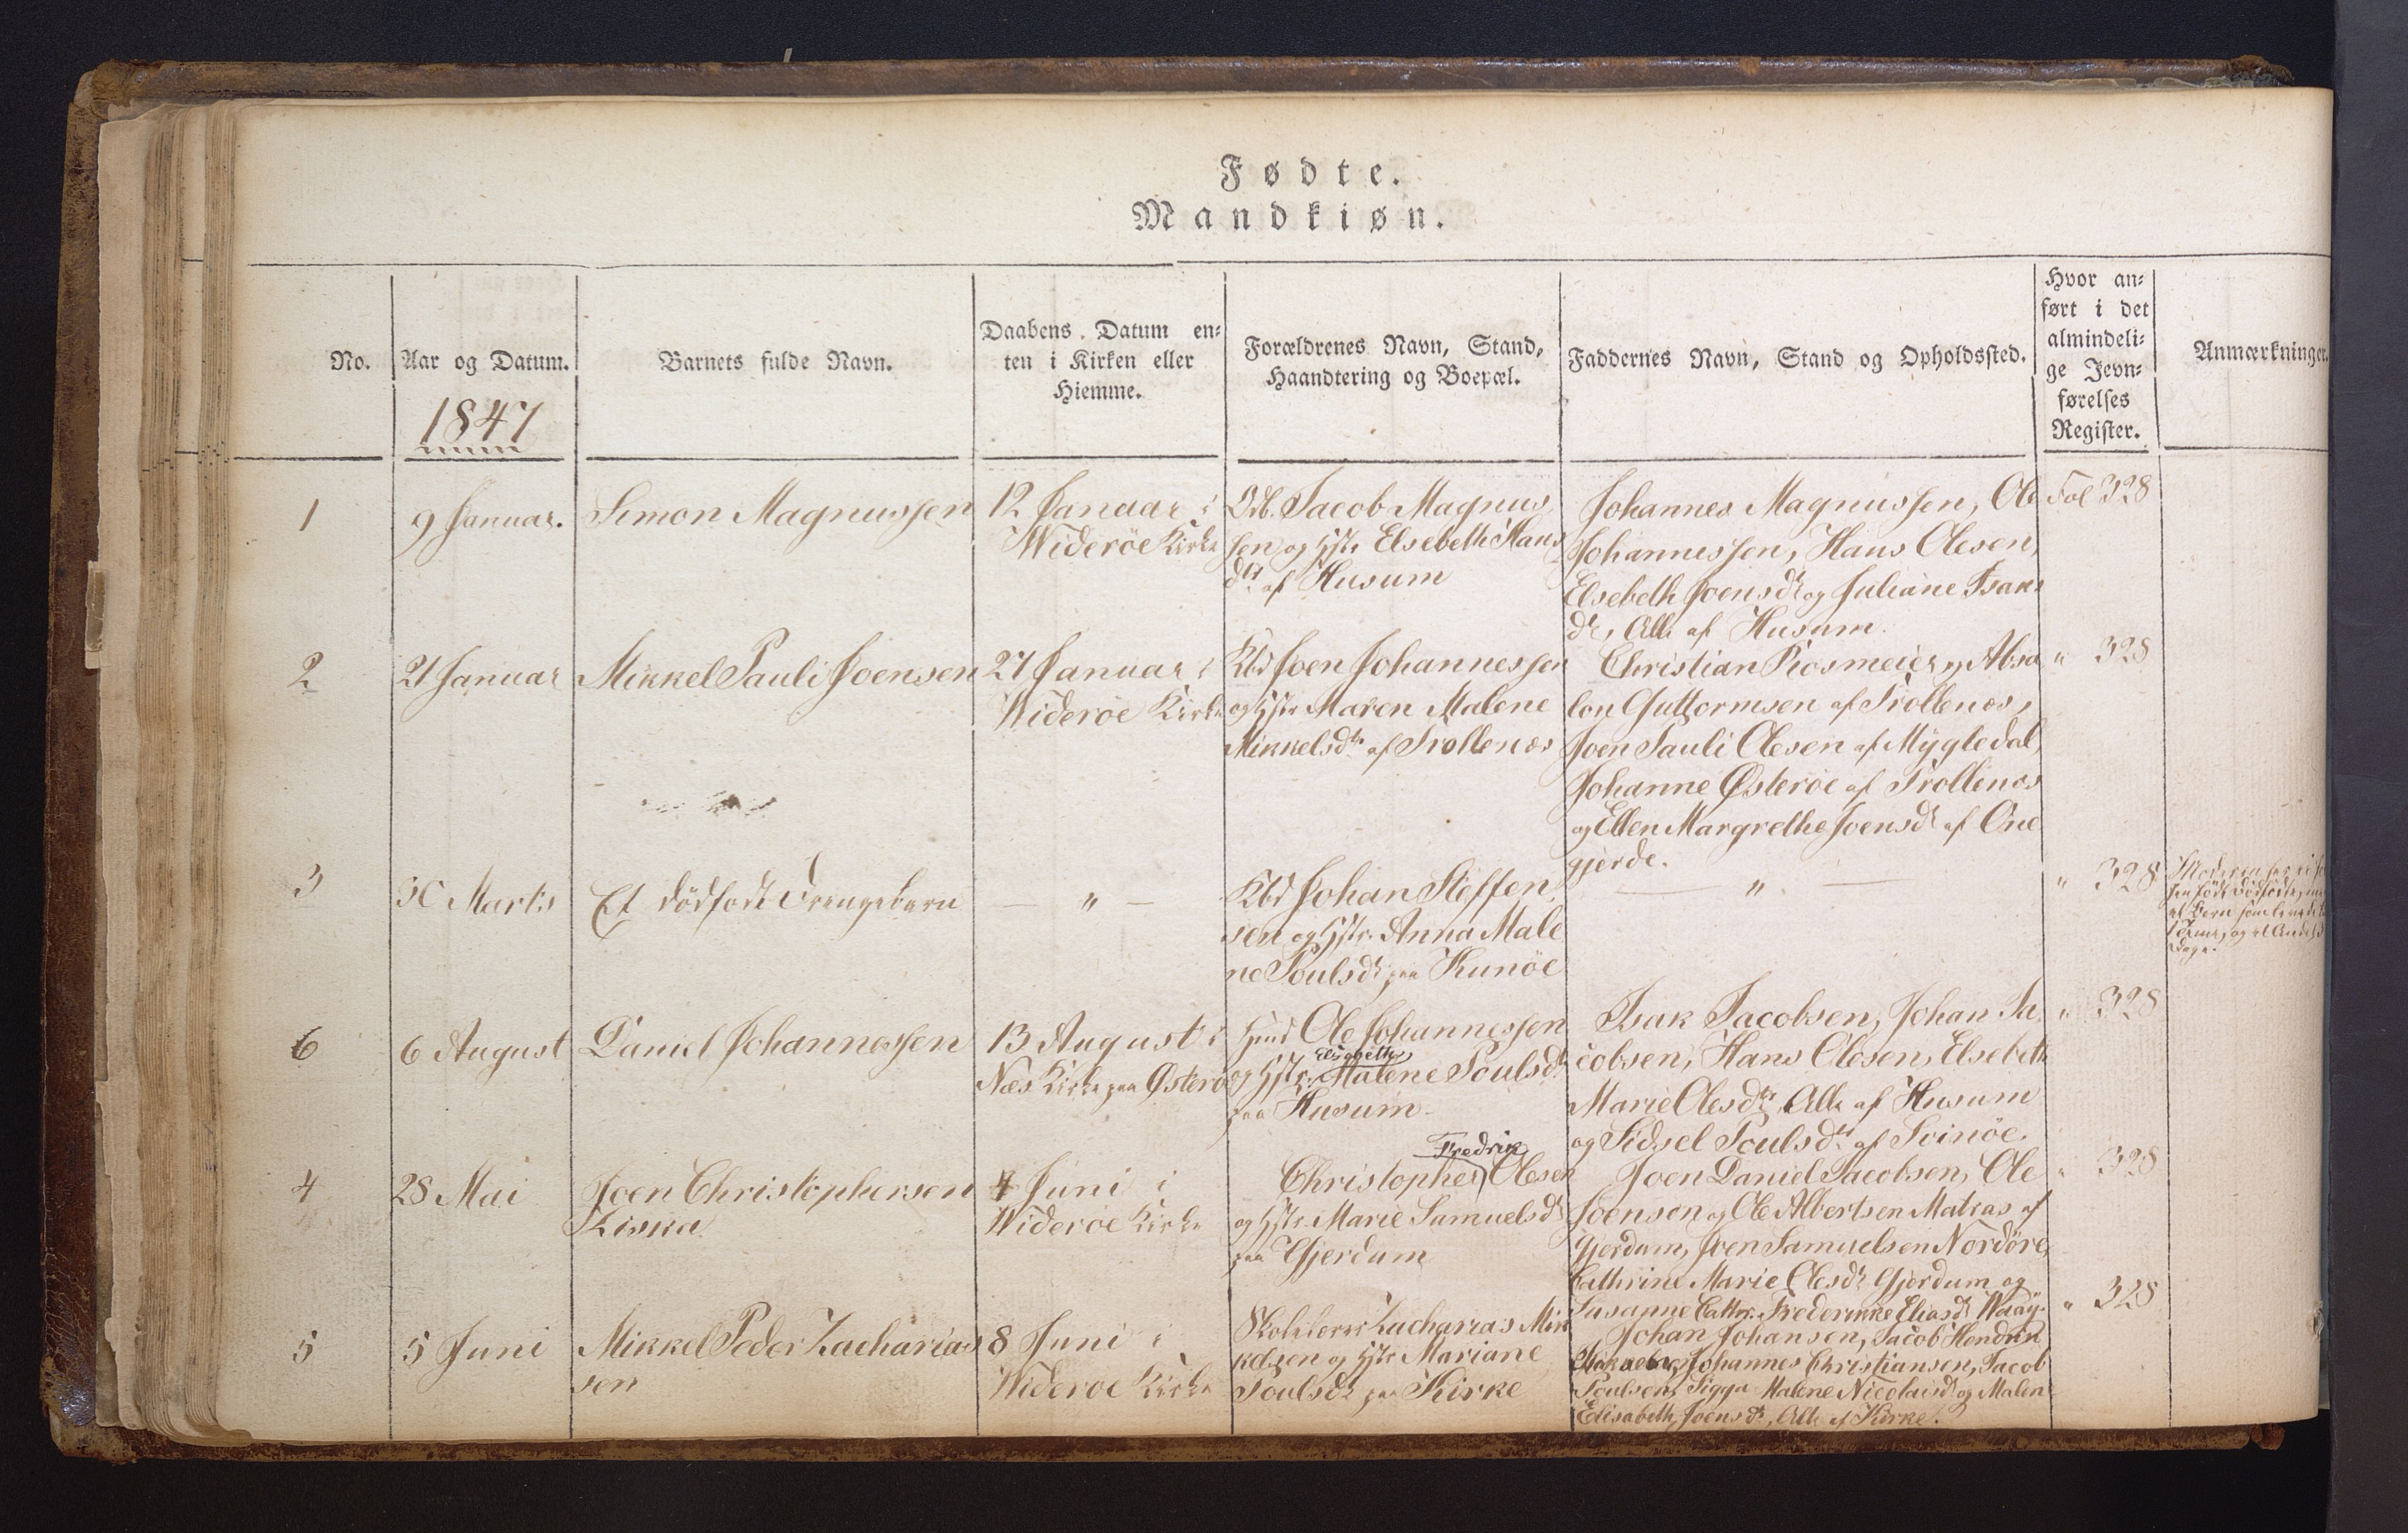 Fødte.
Mandkiøn.
No.
Aar og Datum.
1847
Barnets fulde Navn.
Daabens Datum en-
ten i Kirken eller
Hiemme.
Forældrenes Navn, Stand,
Haandtering og Boepæl.
Faddernes Navn, Stand og Opholdssted.
Hvor an-
ført i det
almindeli-
ge Jevn-
førelses
Register.
Anmærkninger.
1
9 Januar.
Simon Magnussen
12 Januar i
Widerøe Kirke
Jacob Magnus
sen og Hstr Elsebeth Hans
dtr af Husum
Johannes Magnussen, Ole
Johannessen, Hans Olesen,
Elsebeth Joensdr og Juliane Isaks
dr, Alle af Husum.
Fol 328
2
21 Januar
Mikkel Pauli Joensen
27 Januar i
Widerøe Kirke
Kbd Joen Johannessen
og Hstr Maren Malene
Mikkelsdtr af Trollenæs
Christian Piosmeier og Absa
lon Guttormsen af Trollenæs,
Joen Pauli Olesen af Mygledal,
Johanne Østerøe af Trollenæs
og Ellen Margrethe Joensdr af One
gjerde.
" 328
3
30 Marts
Et dödfødt Drengebarn
— " —
Kbd Johan Steffen
sen og Hstr. Anna Male
ne Poulsdr paa Kunöe
— " —
" 328
Moderen har
født dødfødte,
et Barn som levede
1 Time, og et
Dage.
6
6 August
Daniel Johannessen
13 August i
Næs Kirke paa Østerø
Huusmd Ole Johannessen
Elisabeth
og Hstr. Malene Poulsdr
paa Husum.
Isak Jacobsen, Johan Ja
cobsen, Hans Olesen, Elsebeth
Marie Olesdtr, Alle af Husum
og Sidsel Poulsdtr af Svinöe.
" 328
4
28 Mai
Joen Christophersen
Kiska
4 Juni i
Widerøe Kirke
Fredrik
Christopher Olesen
og Hstr Marie Samuelsdr
paa Gjerdum
Joen Daniel Jacobsen, Ole
Joensen og Ole Albertsen Matras af
Gjerdum, Joen Samuelsen Nordöre,
Cathrine Marie Olesdr Gjerdum og
Susanne Cathr. Frederikke Eliasdr Waay.
" 328
5
5 Juni
Mikkel Peder Zacharias
sen
8 Juni i
Widerøe Kirke
Zacharias Mik
kelsen og Hstr Mariane
Poulsdr paa Kirke
Johan Johansen, Jacob Hendrik
Johannes Christiansen, Jacob
Poulsen, Sigga Malene Nicolaisdr og Malen
Elisabeth Joensdr, Alle af Kirke.
" 328